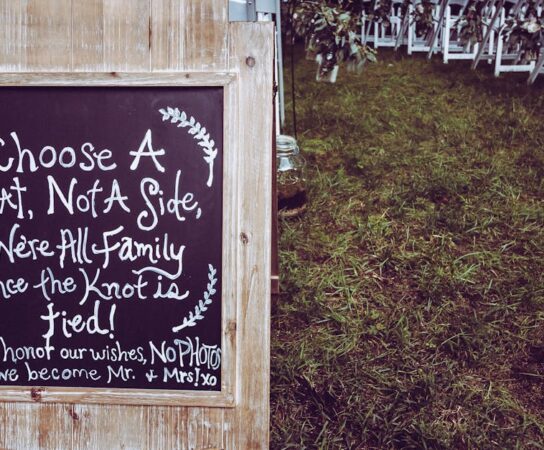 Choose A
at, Not A Side,
We're All Family
nce the Knot is
tied!
honor our wishes, No PHOTOS
we become Mr. + Mrs! xo